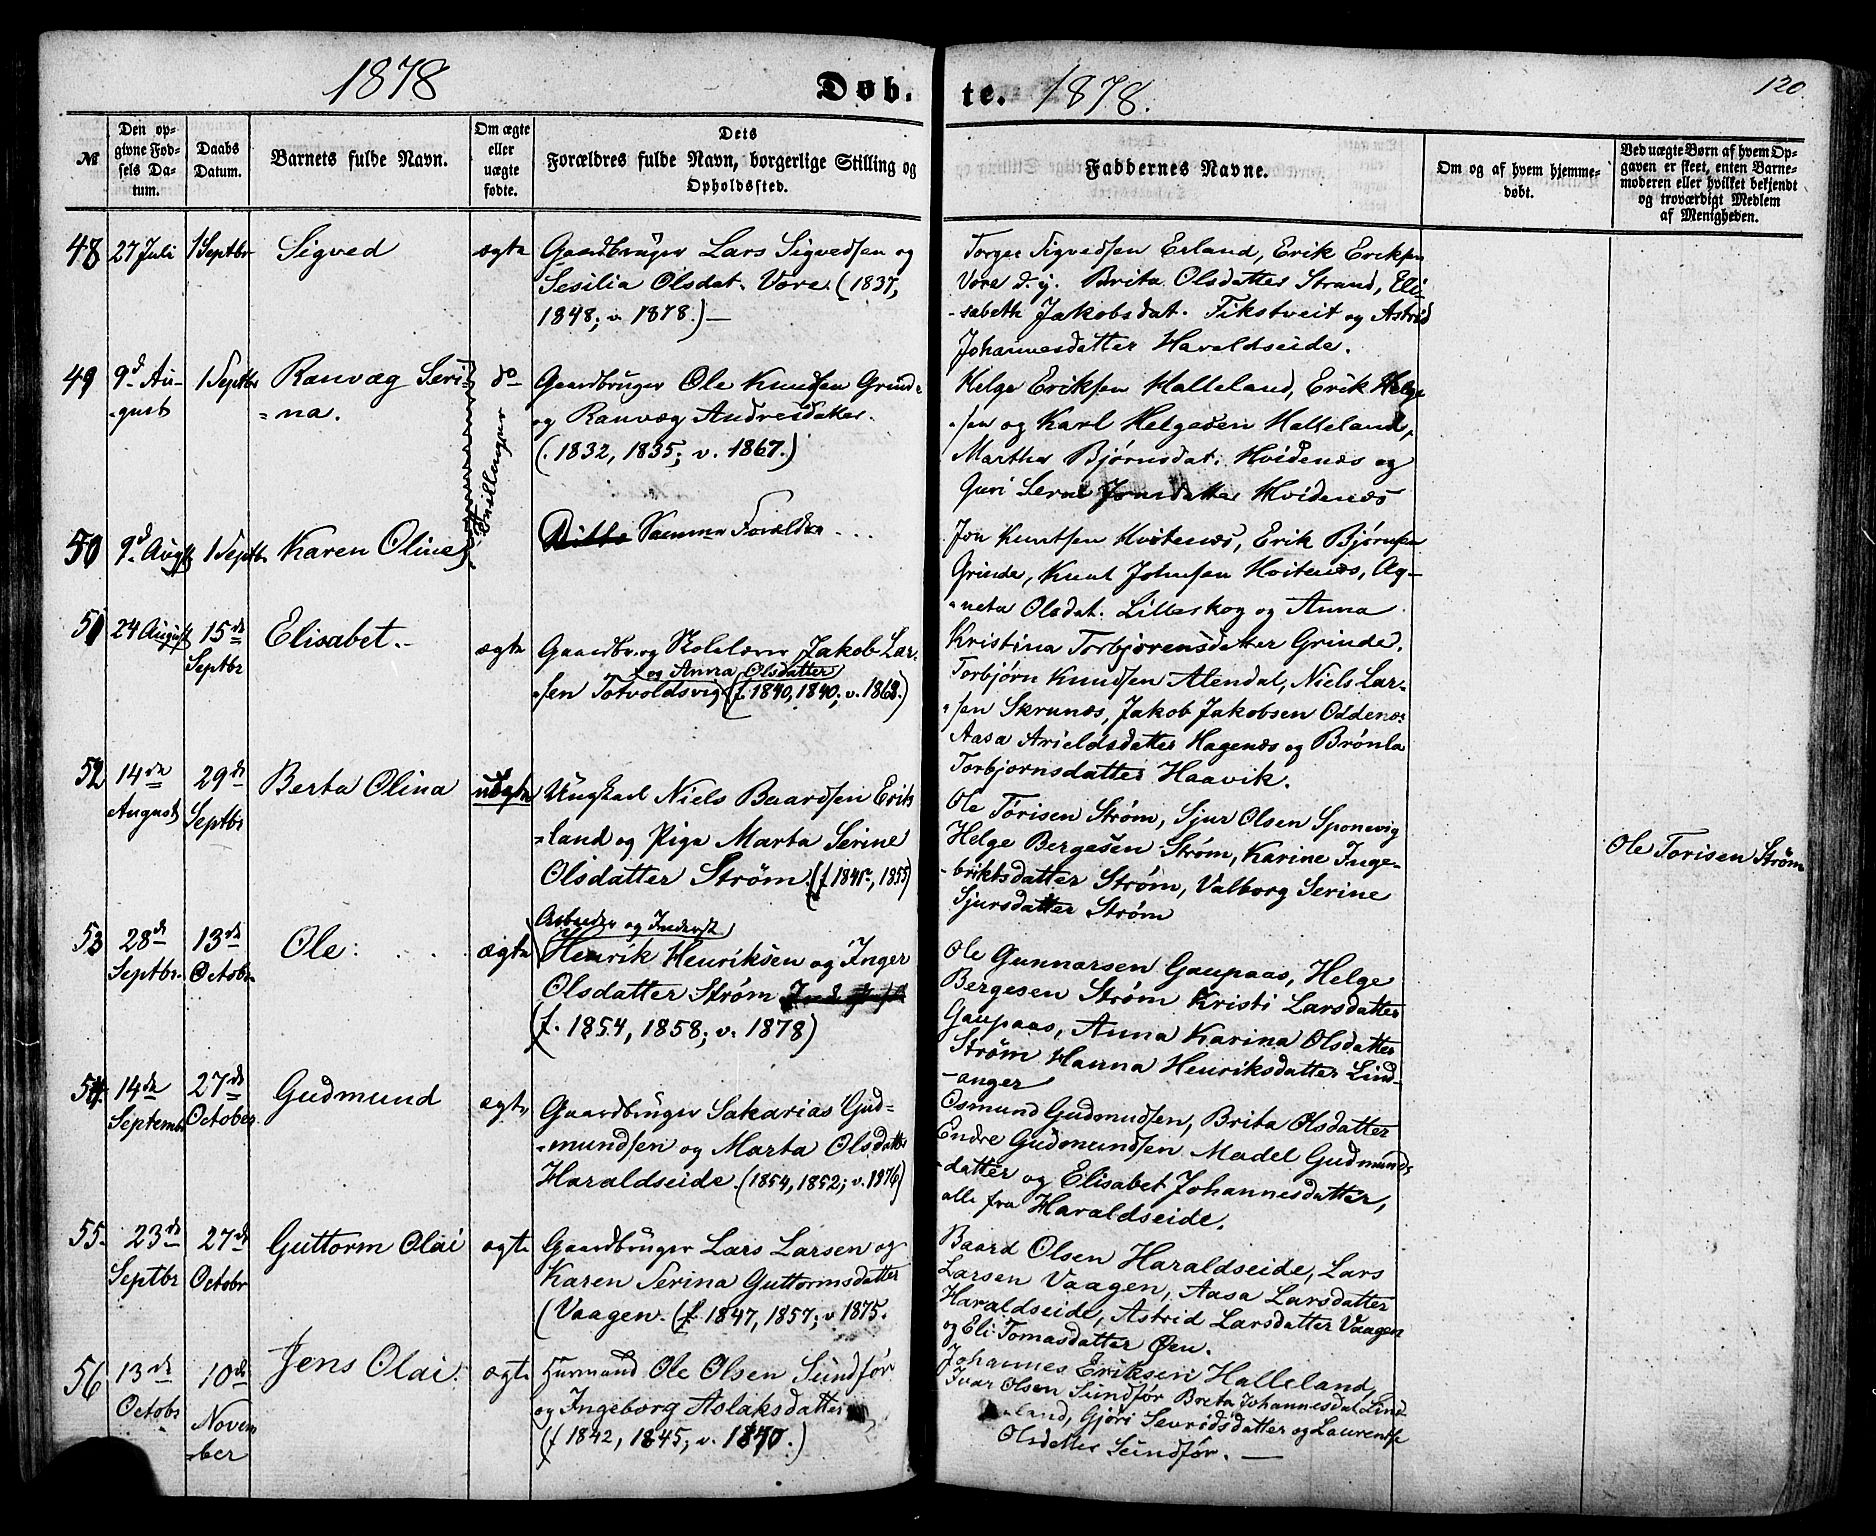 1878
Døb-
te. 1878.
120
№
Den op-
givne Fød-
sels Da-
tum.
Daabs
Datum.
Barnets fulde Navn.
Om ægte
eller
uægte
fødte.
Dets
Forældres fulde Navn, borgerlige Stilling og
Opholdsted.
Faddernes Navne.
Om og af hvem hjemme-
døbt.
Ved uægte Børn af hvem Op-
gaven er skeet, enten Barne-
moderen eller hvilket bekjendt
og troværdigt Medlem
af Menigheden.
48
27 Juli
1 Septbr
Sigved
ægte
Gaardbruger Lars Sigvedsen og
Sesilia Olsdat. Vore. (1837,
1848; v. 1878.) —
Torger Sigvedsen Erland, Erik Eriksen
Vore d. y. Brita Olsdatter Strand, Eli-
-sabeth Jakobsdat. Fikstveit og Astrid
Johannesdatter Haraldseide.
49
9d Au-
-gust
1 Septbr
Ranvæg Seri-
=na.
do
Tvillinger
Gaardbruger Ole Knudsen Grinde
og Ranvæg Andresdatter.
(. 1832, 1835; v. 1867.)
Helge Eriksen Halleland, Erik Helge
-sen og Karl Helgesen Halleland,
Martha Bjørnsdat. Hvidenæs og
Guri Serine Jonsdatter Hvidenæs
50
9d Augst
1 Septbr
Karen Oline
Samme Forældre ...
Jon Knutsen Hvitenæs, Erik Bjørnsen
Grinde, Knut Johnsen Hvitenæs, Ag-
-neta Olsdat. Lilleskog og Anna
Kristina Torbjørensdatter Grinde.
51
24 August
15de
Septbr
Elisabet. -
ægte
Gaardbr. og Skolelærer Jakob Lar-
og Anna Olsdatter
-sen Totvoldsvig (f. 1840, 1840; v. 1862.)
Torbjørn Knudsen Alendal, Niels Lar-
-sen Skrunæs, Jakob Jakobsen Oddenæs
Aasa Arieldsdatter Hagenæs og Brønla
Torbjornsdatter Haavik.
52
14de
August
29de
Septbr
Berta Olina
uægte
Ungkarl Niels Baardsen Eriks
-land og Pige Marta Serine
Olsdatter Strøm. (f 1845, 1855)
Ole Tørisen Strøm, Sjur Olsen Sponevig
Helge Bergesen Strøm, Karine Inge-
-briktsdatter Strøm, Valborg Serine
Sjursdatter Strøm
Ole Torisen Strøm
53
28de
Septbr.
13de
Octobr
Ole: . . .
ægte
Arbeider og Inderst
Henrik Henriksen og Inger
Olsdatter Strøm
(f. 1854, 1858; v. 1878)
Ole Gunnarsen Gaupaas, Helge
Bergesen Strøm Kristi Larsdatter
Gaupaas, Anna Karina Olsdatter
Strøm Hanna Henriksdatter Lind-
-anger
54.
14de
Septembr
27de
October
Gudmund
ægte
Gaardbruger Sakarias Gud-
-mundsen og Marta Olsdatter
Haraldseide. (1854, 1852; v. 1876)
Osmund Gudmudsen, Brita Olsdatter
Endre Gudmundsen Madel Gudmunds
-datter og Elisabet Johannesdatter,
alle fra Haraldseide.
55.
23de
Septbr
27de
Octobr
Guttorm Olai
ægte
Gaardbruger Lars Larsen og
Karen Serina Guttormsdatter
(Vaagen. (f. 1847, 1857; v 1875.
Baard Olsen Haraldseide, Lars
Larsen Vaagen, Aasa Larsdatter
Haraldseide, Astrid Larsdatter Vaagen
og Eli Tomasdatter Øen.
56
13de
Octobr
10de
Novem
-ber
Jens Olai.
ægte
Husmand Ole Olsen Sundfør
og Ingeborg Aslaksdatter
(f 1842, 1845; v. 1870.)
Johannes Eriksen Halleland,
Ivar Olsen Sundfør Brita Johannesdat. Lind
-land, Gjøri Sevridsdatter og Laurentse
Olsdatter Sundfør. —